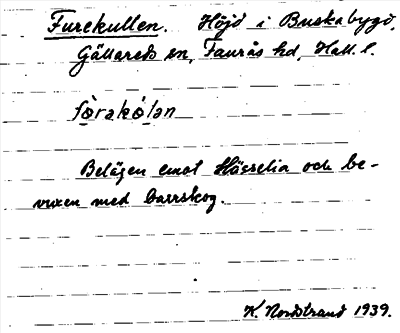 Furekullen. Höjd i Buskabygd,
Gällareds sn, Faurås hd, Hall. l.
fòrakólan
Belägen emot Hässelia och be-
vuxen med barrskog.
K. Nordstrand 1939.